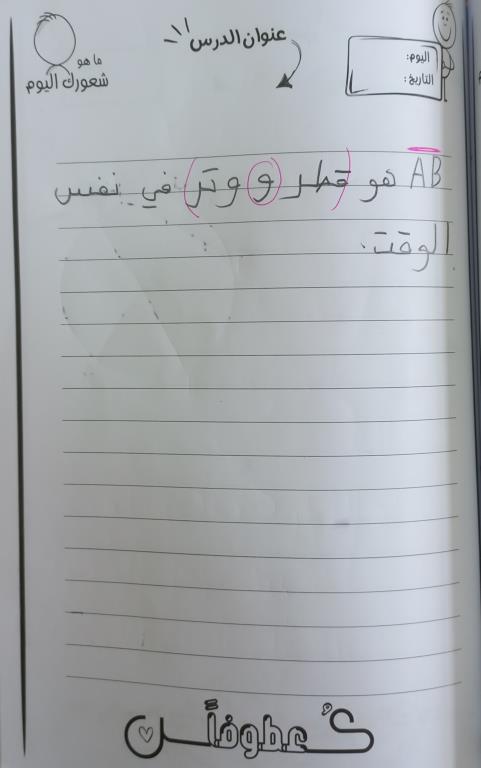 عنوان الدرس
اليوم:
التاريخ:
ما هو
شعورك اليوم
AB هو (قطر و وتر) في نفس
الوقت.